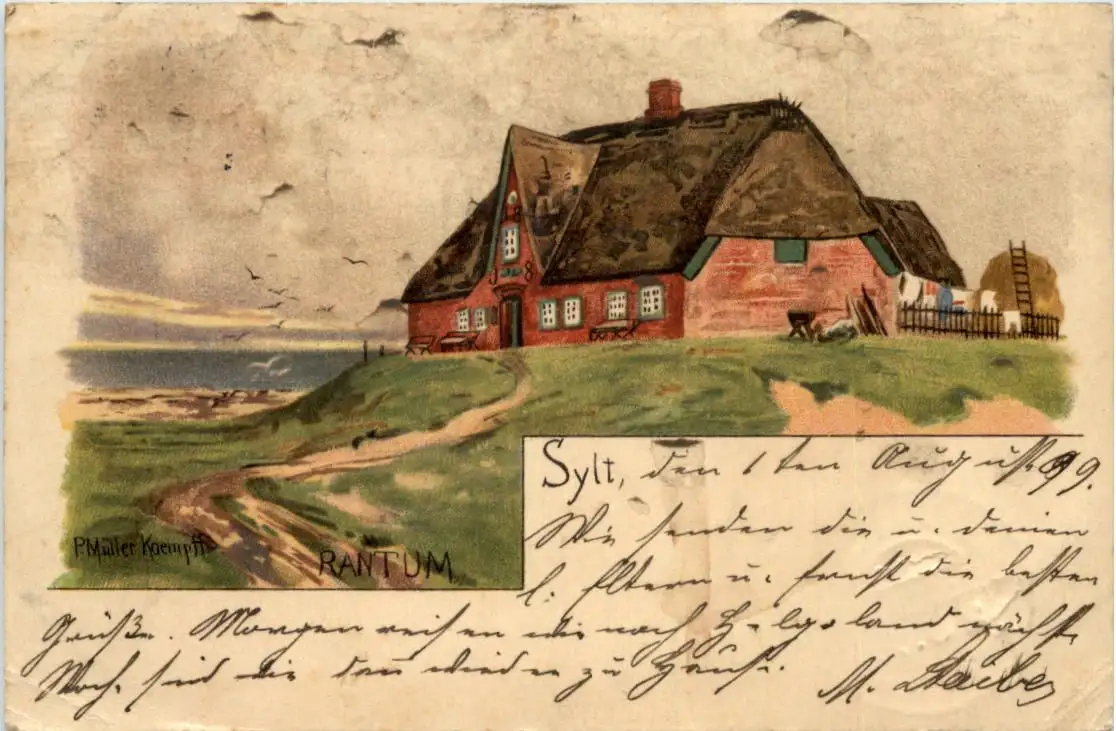 P. Müller Kaempff
RANTUM
Sylt, den 1ten August 99.
Wir senden dir u. deinen
l. Eltern u. Ernst die besten
Grüße. Morgen reisen wir nach Helgoland nächste
Woche sind wir dann wieder zu Hause.
M.